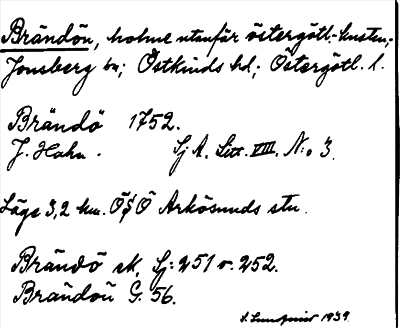 Brändön, holme utanför östergötl.-kusten;
Jonsberg sn; Östkinds hd; Östergötl. l.
Brändö 1752.
J. Hahn. Sj A. Litt. VIII. N:o 3.
Läge 3,2 km. Ö§Ö Arkösunds stn.
Brändö sk, Sj: 251 o. 252.
Brändön G. 56.
S. Lundqvist 1939